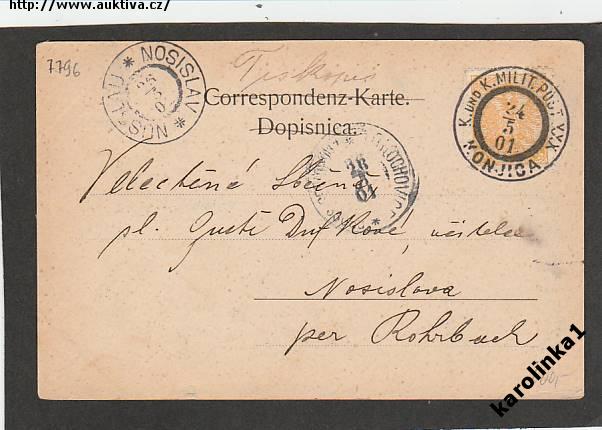 http://www.auktiva.cz/
7796
NOSISLAV * NUSSLAU *
Tiskopis
Correspondenz-Karte.
Dopisnica.
K. UND K. MILIT. POST XXX
24
5
01
KONJICA
Velectěná Slečna
pl. Gustě Dufkové, učitelce
Nosislava
per Rohrbach
karolinka1